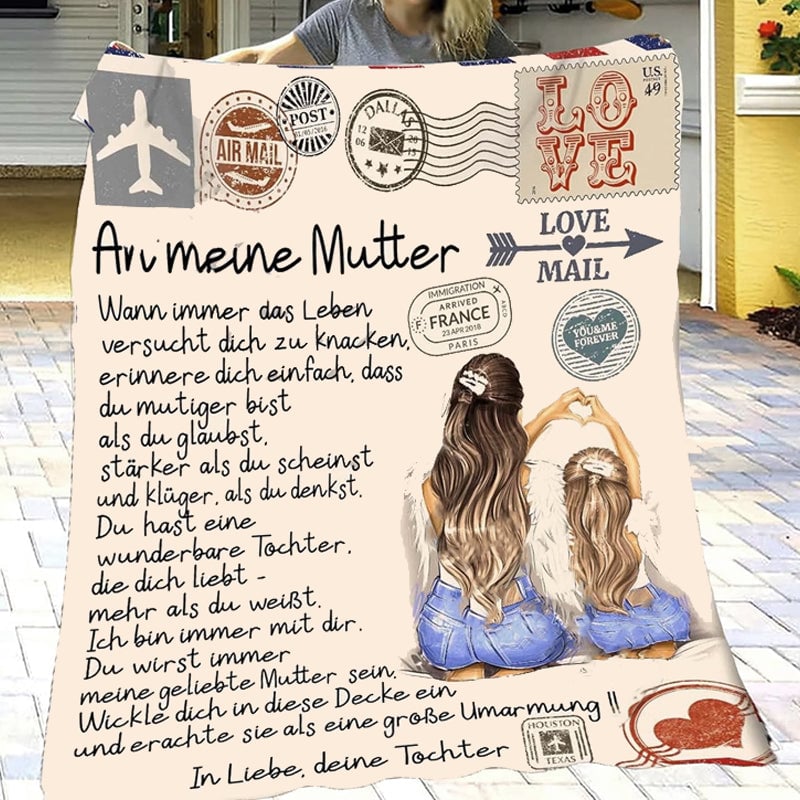 AIR MAIL
POST
11/05/2016
DALLAS
12 06
20 15
LOVE
U.S.
POSTAGE
49
An meine Mutter
LOVE
MAIL
Wann immer das Leben
versucht dich zu knacken,
erinnere dich einfach, dass
du mutiger bist
als du glaubst,
stärker als du scheinst
und klüger, als du denkst.
Du hast eine
wunderbare Tochter,
die dich liebt -
mehr als du weißt.
Ich bin immer mit dir.
Du wirst immer
meine geliebte Mutter sein.
Wickle dich in diese Decke ein
und erachte sie als eine große Umarmung !!
In Liebe, deine Tochter
IMMIGRATION
ARRIVED
FRANCE
23 APR 2018
PARIS
YOU&ME
FOREVER
HOUSTON
TEXAS